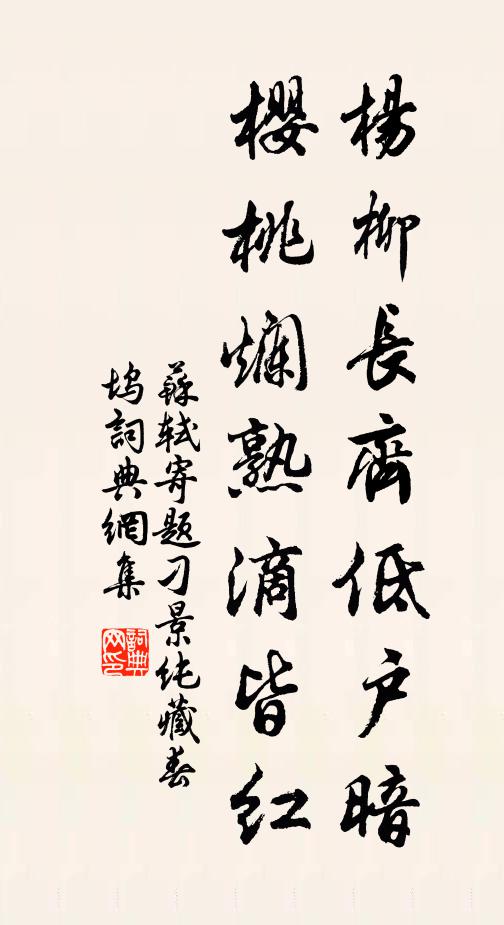 楊柳長齊低户暗
櫻桃爛熟滴皆红
蘇軾寄題刁景纯藏春
塢詞典網集
詞典
网印